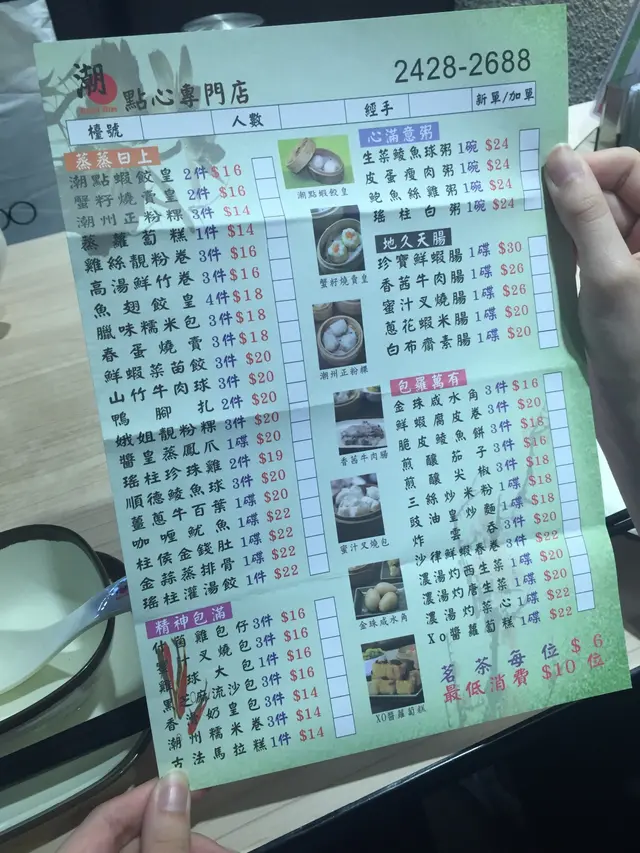 潮
點心專門店
2428-2688
檯號 人數 經手 新單/加單
蒸蒸日上
潮點蝦餃皇 2件 $16
蟹籽燒賣皇 2件 $16
潮州正粉粿 3件 $14
蒸蘿蔔糕 1件 $14
雞絲靚粉卷 3件 $16
高湯鮮竹卷 3件 $16
魚翅餃皇 4件 $18
臘味糯米包 3件 $18
春蛋燒賣 3件 $18
鮮蝦菜苗餃 3件 $20
山竹牛肉球 3件 $20
鴨腳扎 2件 $20
娥姐靚粉粿 3件 $20
醬皇蒸鳳爪 1碟 $20
瑤柱珍珠雞 2件 $19
順德鯪魚球 3件 $20
薑蔥牛百葉 1碟 $20
咖喱魷魚 1碟 $22
柱侯金錢肚 1碟 $22
金蒜蒸排骨 1碟 $22
瑤柱灌湯餃 1件 $22
精神包滿
雞包仔 3件 $16
叉燒包 3件 $14
球大包 1件 $16
黑芝麻流沙包 3件 $16
香滑奶皇包 3件 $14
潮州糯米卷 3件 $14
古法馬拉糕 1件 $14
潮點蝦餃皇
蟹籽燒賣皇
潮州正粉粿
香茜牛肉腸
蜜汁叉燒包
金珠咸水角
XO醬蘿蔔糕
心滿意粥
生菜鯪魚球粥 1碗 $24
皮蛋瘦肉粥 1碗 $24
鮑魚絲雞粥 1碗 $24
瑤柱白粥 1碗 $24
地久天腸
珍寶鮮蝦腸 1碟 $30
香茜牛肉腸 1碟 $26
蜜汁叉燒腸 1碟 $26
蔥花蝦米腸 1碟 $20
白布齋素腸 1碟 $20
包羅萬有
金珠咸水角 3件 $16
鮮蝦腐皮卷 3件 $20
脆皮鯪魚餅 3件 $18
煎釀茄子 3件 $16
煎釀尖椒 3件 $18
三絲炒米粉 1碟 $18
豉油皇炒麵 1碟 $18
炸雲吞 3件 $20
沙律鮮蝦春卷 3件 $20
濃湯灼西生菜 1碟 $20
濃湯灼唐生菜 1碟 $20
濃湯灼菜心 1碟 $20
Xo醬蘿蔔糕 1碟 $22
茗茶每位 $6
最低消費 $10位